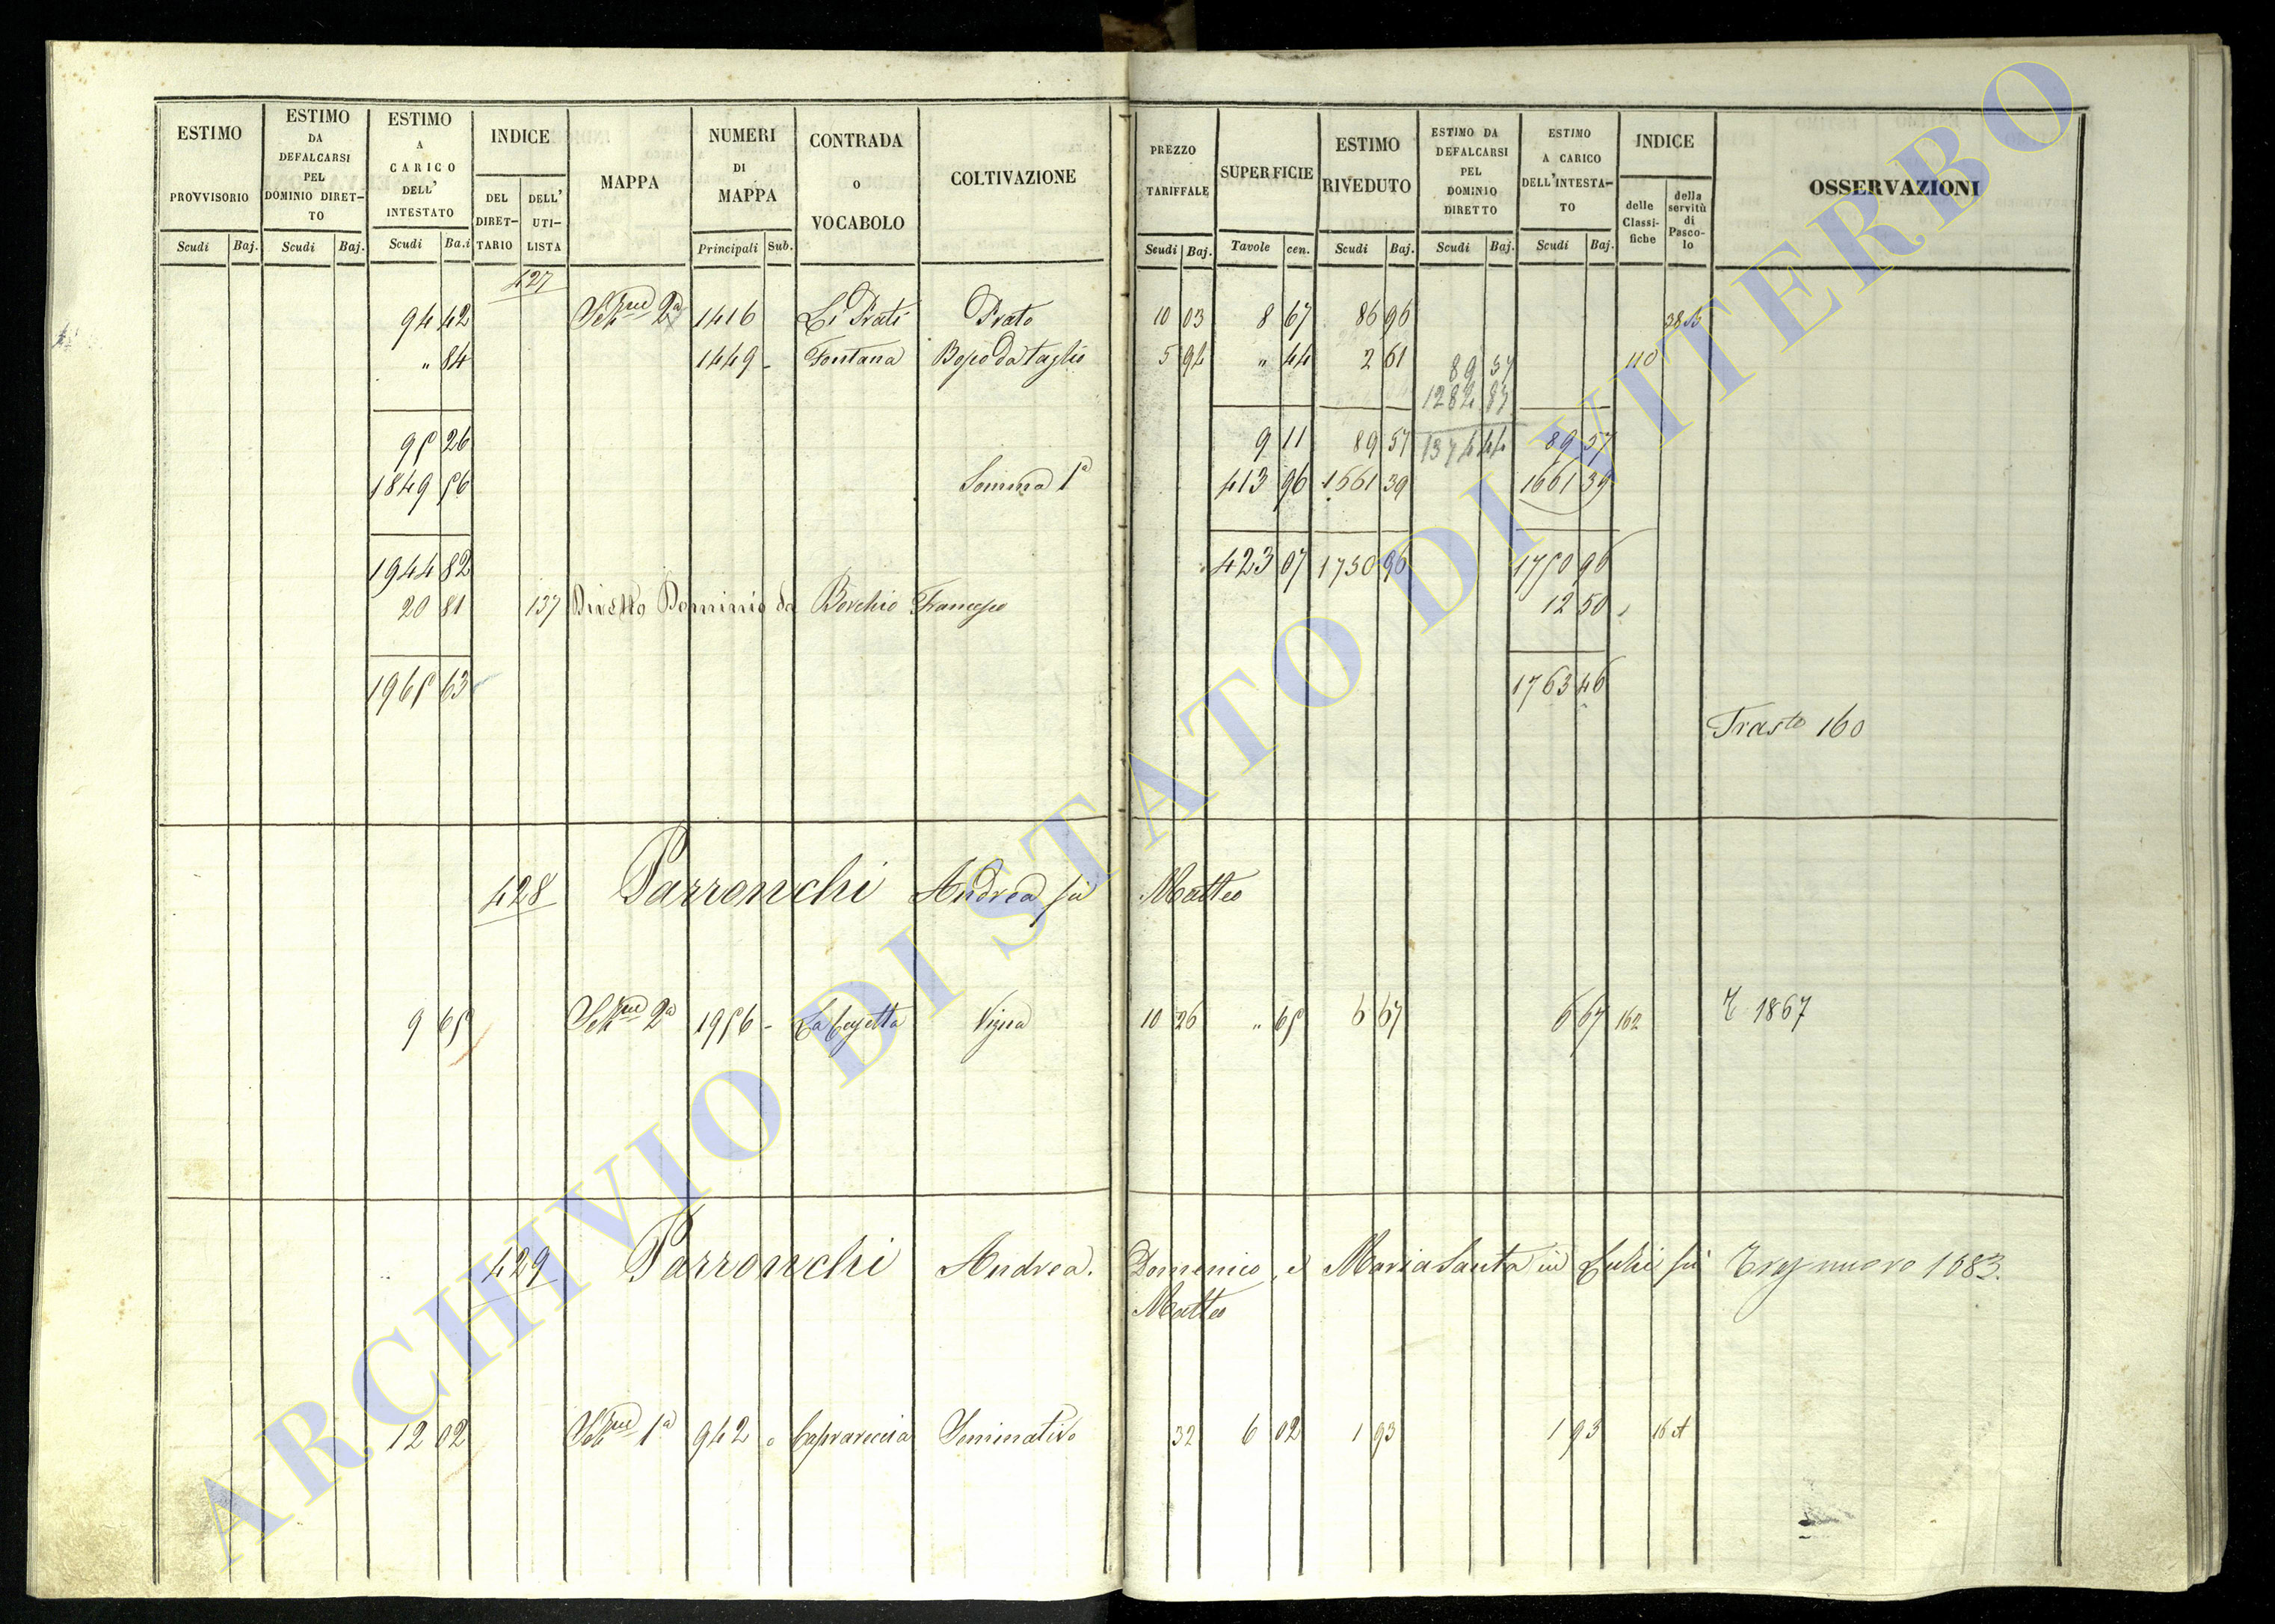 ESTIMO PROVVISORIO Scudi Baj.
ESTIMO DA DEFALCARSI PEL DOMINIO DIRET-TO Scudi Baj.
ESTIMO A CARICO DELL' INTESTATO Scudi Ba.i
INDICE DEL DIRET-TARIO DELL' UTI-LISTA
MAPPA
NUMERI DI MAPPA Principali Sub.
CONTRADA o VOCABOLO
COLTIVAZIONE
PREZZO TARIFFALE Scudi Baj.
SUPERFICIE Tavole cen.
ESTIMO RIVEDUTO Scudi Baj.
ESTIMO DA DEFALCARSI PEL DOMINIO DIRETTO Scudi Baj.
ESTIMO A CARICO DELL'INTESTA-TO Scudi Baj.
INDICE delle Classi-fiche della servitù di Pasco-lo
OSSERVAZIONI
427
94 42 Sez.ne 2a 1416 Li Prati Prato 10 03 8 67 86 96 38 B
" 84 1449 - Fontana Bosco da taglio 5 94 " 44 2 61 89 57 110
1284 87
95 26 9 11 89 57 1374 44 89 57
1849 56 Somma 1a 413 96 1661 39 1661 39
1944 82 423 07 1750 96 1750 96
20 81 137 Diretto Dominio da Borchio Francesco 12 50
1965 63 1763 46
Trasto 160
428 Parronchi Andrea fu Matteo
9 65 Sez.ne 2a 1956 - La Casetta Vigna 10 26 " 65 6 67 6 67 162 T 1867
429 Parronchi Andrea. Domenico, e Maria Santa in fu nuovo 1083.
Matteo
12 02 Sez.ne 1a 942 Caprareccia Seminativo 32 6 02 1 93 1 93 16 A
ARCHIVIO DI STATO DI VITERBO